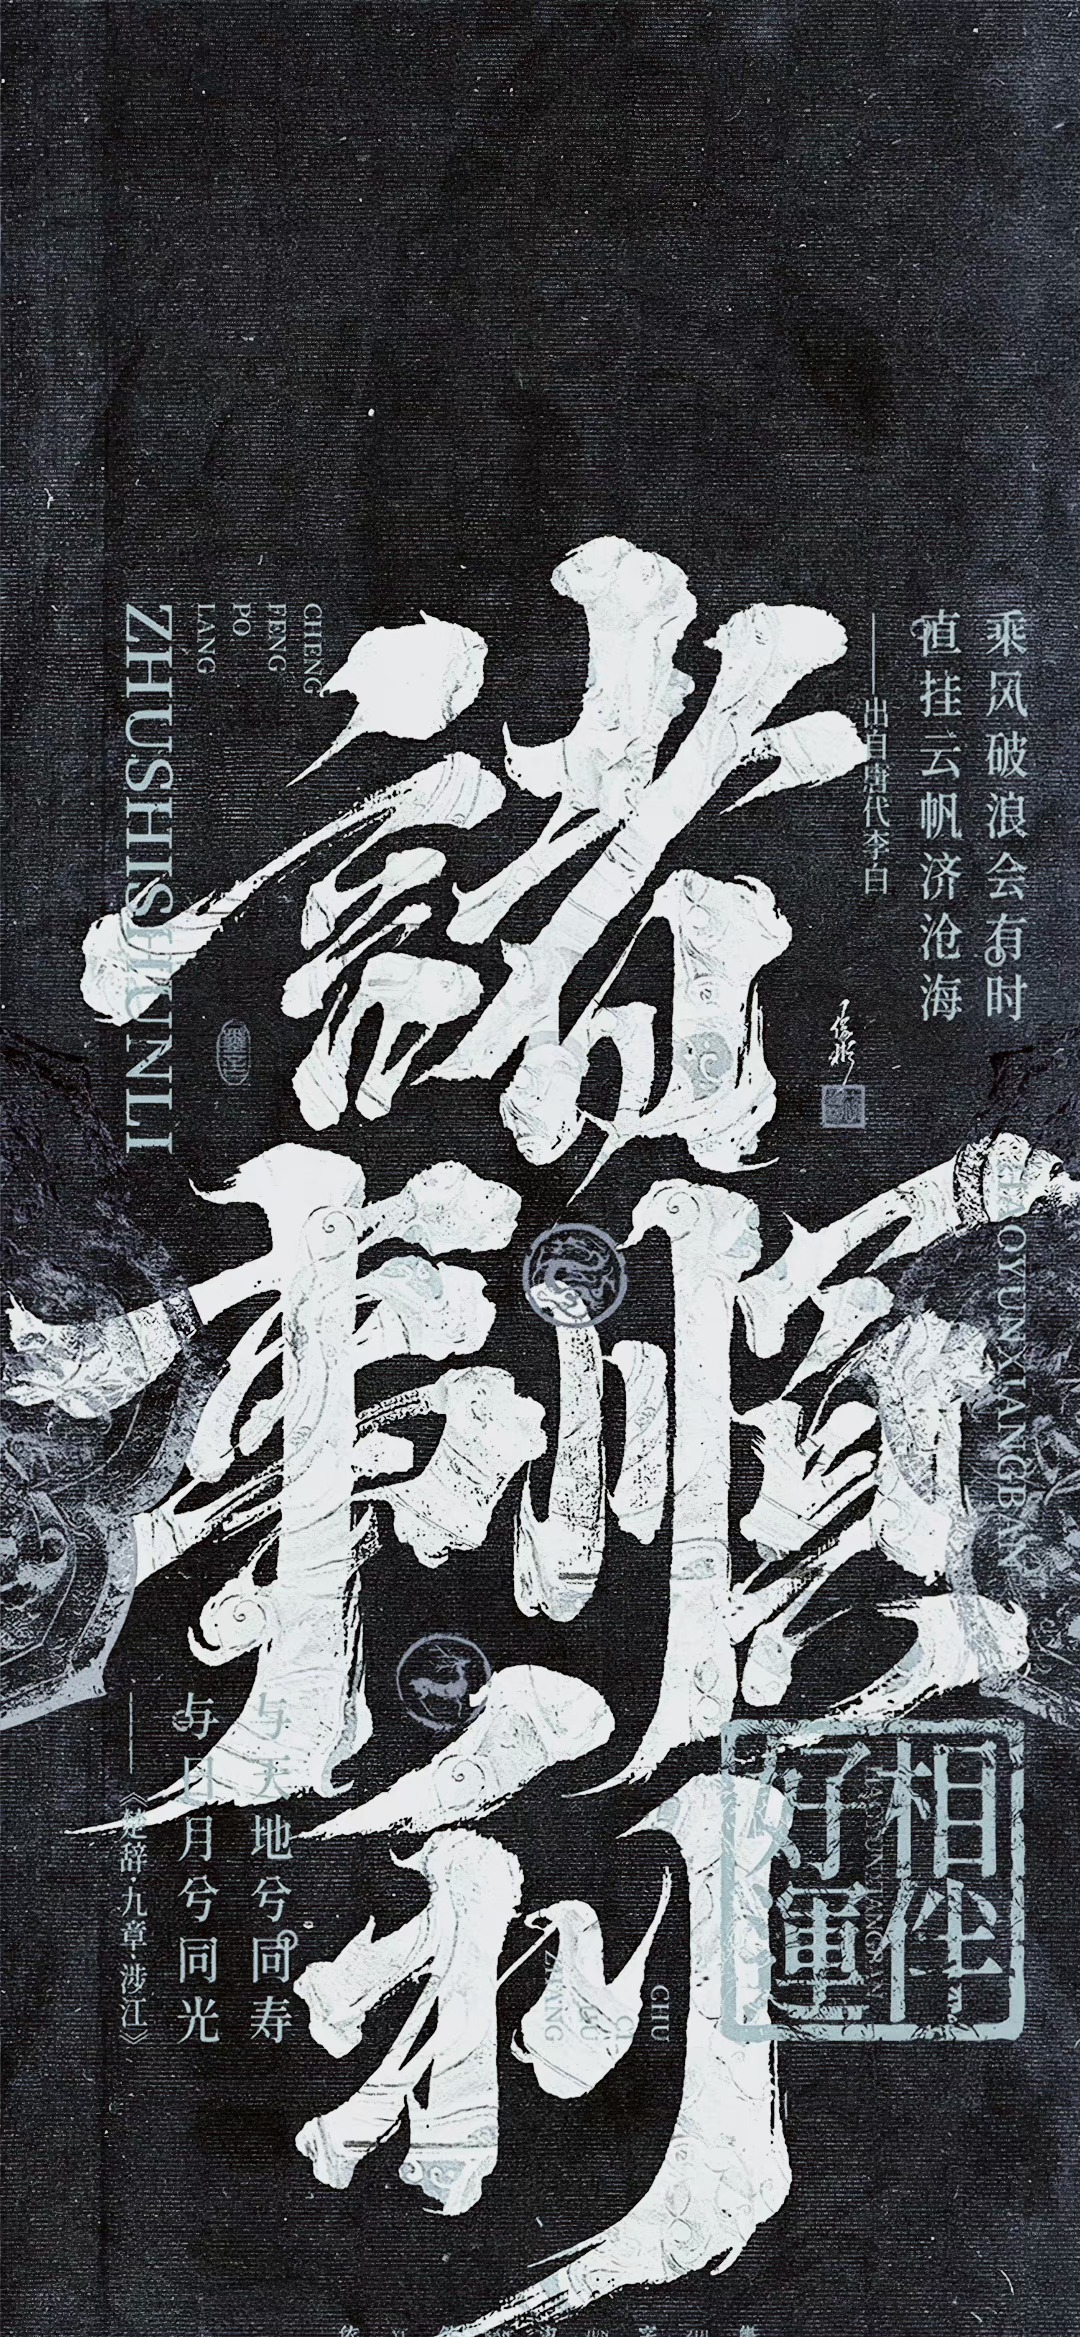 諸事順利
乘风破浪会有时
直挂云帆济沧海
——出自唐代李白
CHENG
FENG
PO
LANG
ZHUSHISHUNLI
OYUNXIANGBAN
相伴
好運
与天地兮同寿
与日月兮同光
——《楚辞·九章·涉江》
CHU
CI
JIU
ZHANG